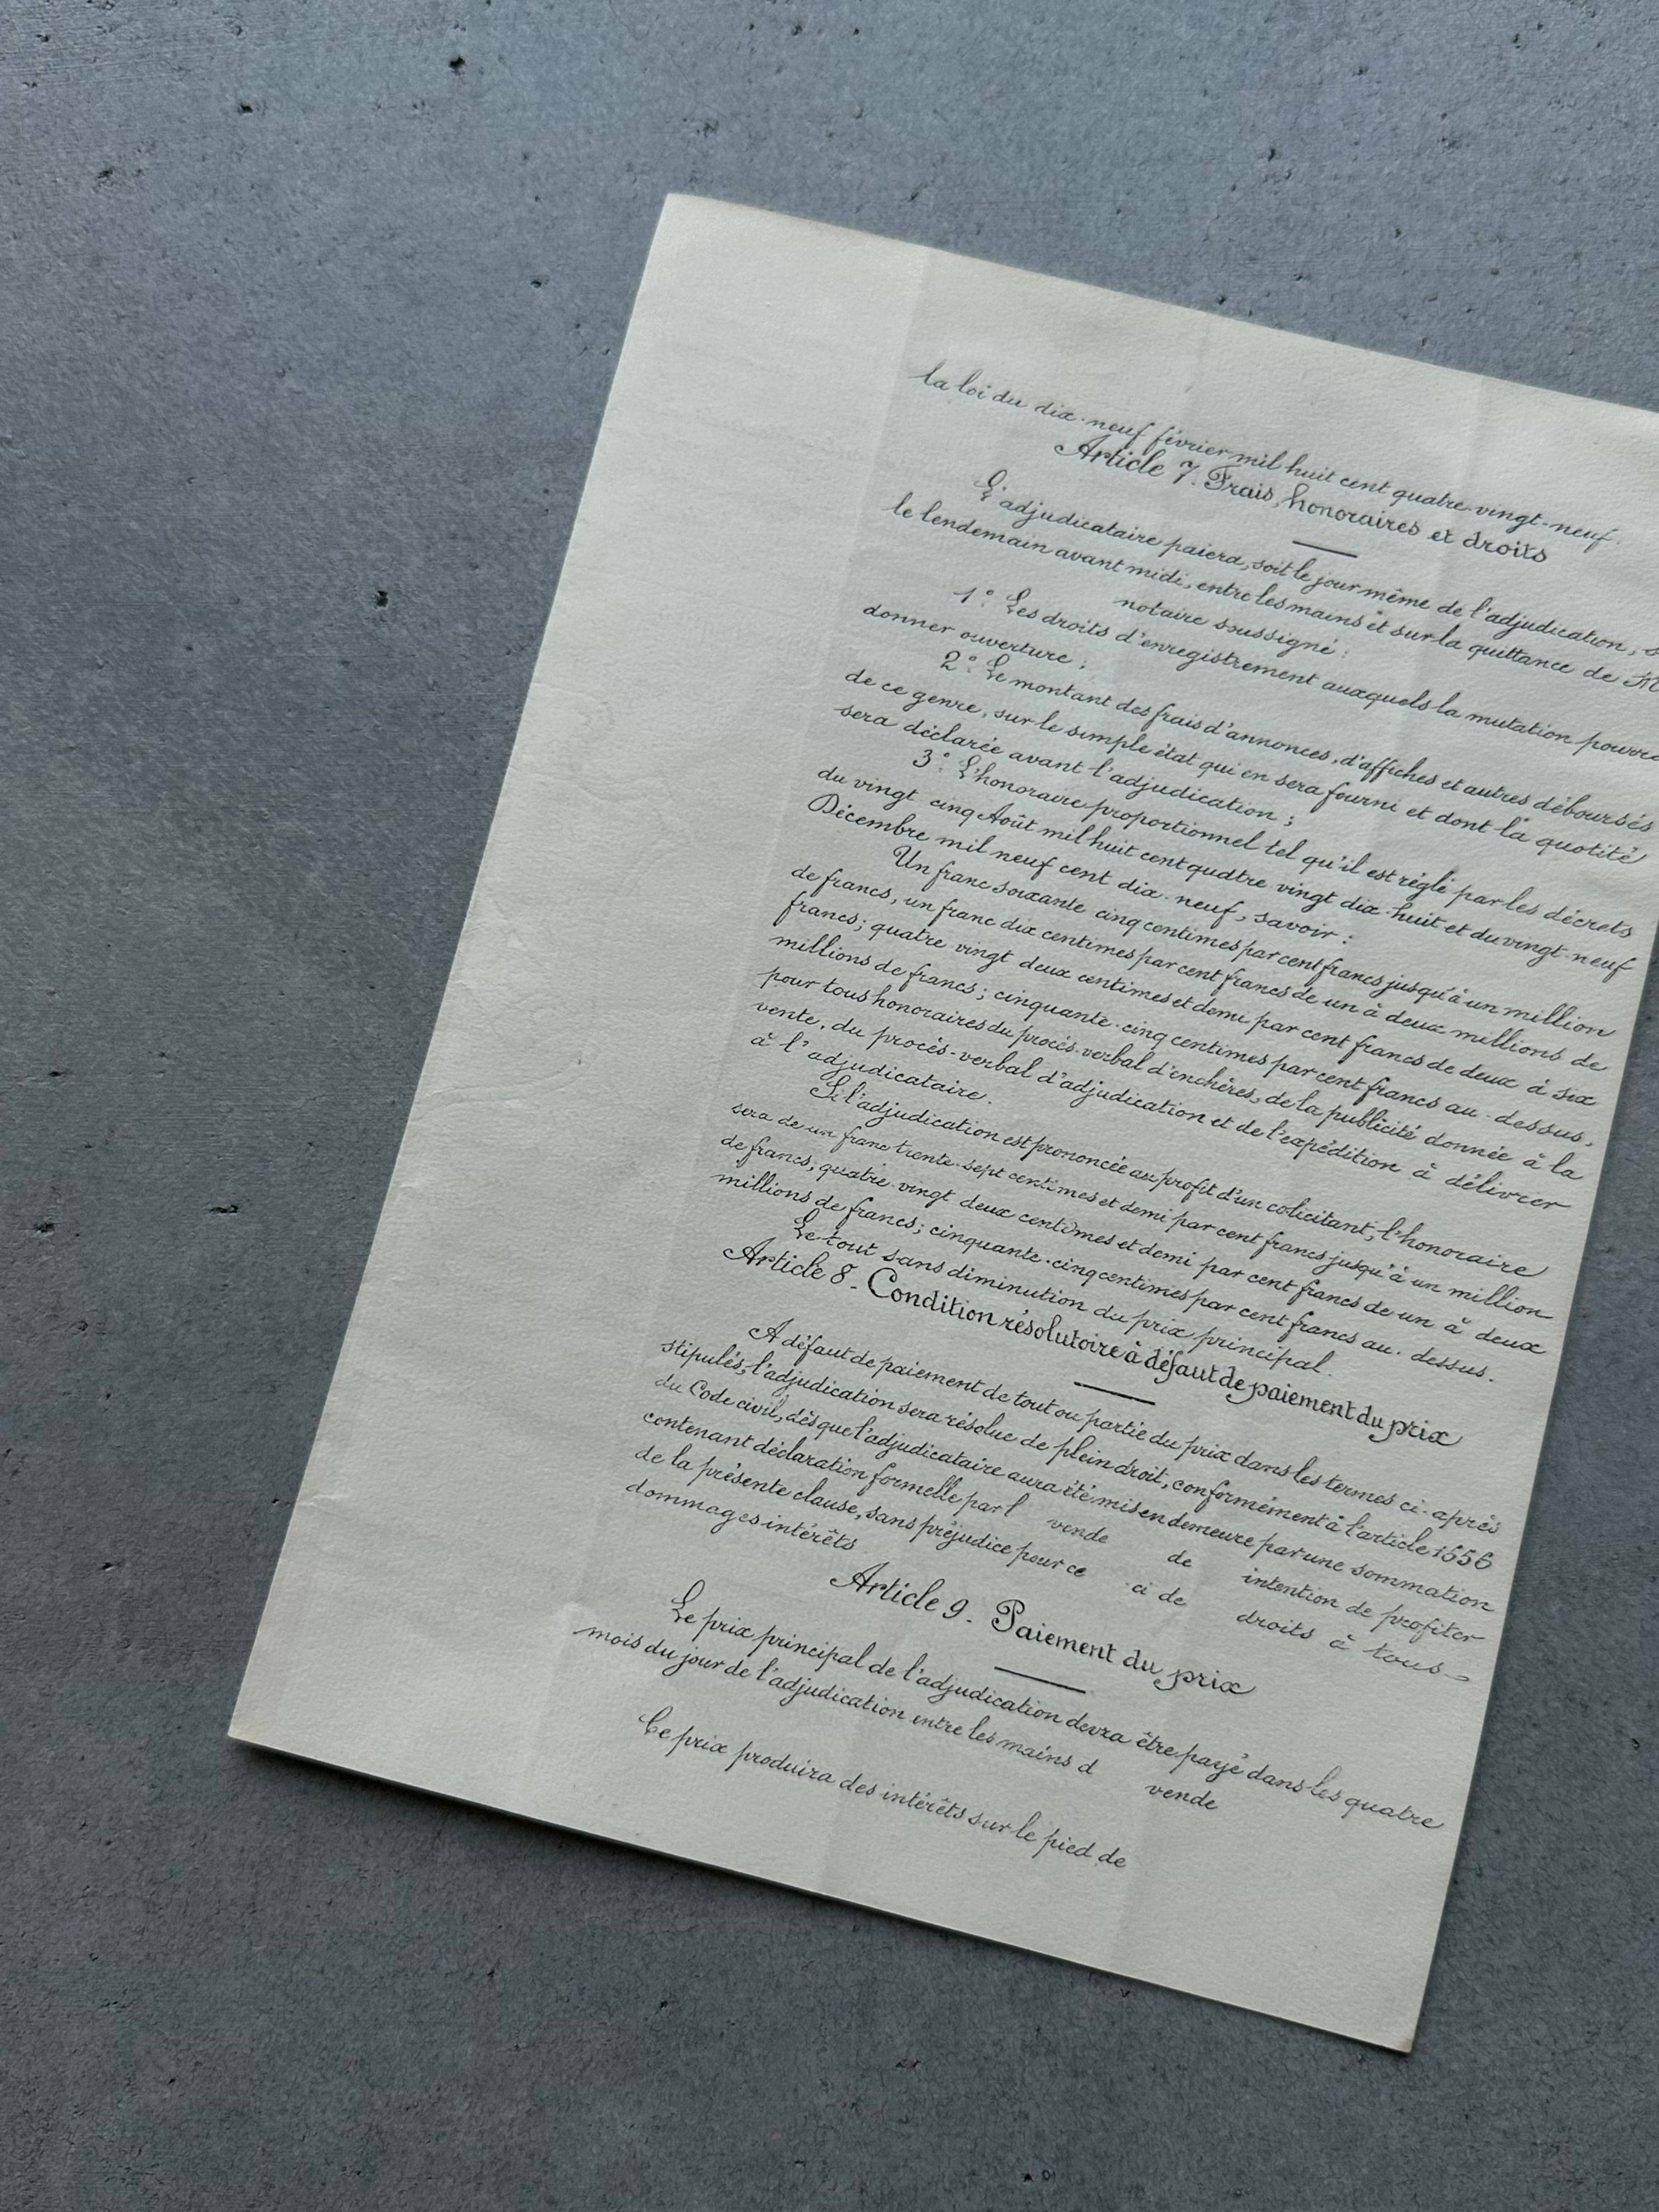 la loi du dix-neuf février mil huit cent quatre-vingt-neuf.
Article 7. Frais, honoraires et droits
L'adjudicataire paiera, soit le jour même de l'adjudication, s
le lendemain avant midi, entre les mains et sur la quittance de M
notaire soussigné :
1° Les droits d'enregistrement auxquels la mutation pourra
donner ouverture ;
2° Le montant des frais d'annonces, d'affiches et autres déboursés
de ce genre, sur le simple état qui en sera fourni et dont la quotité
sera déclarée avant l'adjudication ;
3° L'honoraire proportionnel tel qu'il est réglé par les décrets
du vingt cinq Août mil huit cent quatre vingt dix-huit et du vingt-neuf
Décembre mil neuf cent dix-neuf, savoir :
Un franc soixante cinq centimes par cent francs jusqu'à un million
de francs, un franc dix centimes par cent francs de un à deux millions de
francs ; quatre vingt deux centimes et demi par cent francs de deux à six
millions de francs ; cinquante-cinq centimes par cent francs au-dessus,
pour tous honoraires du procès-verbal d'enchères, de la publicité donnée à la
vente, du procès-verbal d'adjudication et de l'expédition à délivrer
à l'adjudicataire.
Si l'adjudication est prononcée au profit d'un colicitant, l'honoraire
sera de un franc trente-sept centimes et demi par cent francs jusqu'à un million
de francs, quatre-vingt deux centimes et demi par cent francs de un à deux
millions de francs ; cinquante-cinq centimes par cent francs au-dessus.
Le tout sans diminution du prix principal.
Article 8 - Condition résolutoire à défaut de paiement du prix
A défaut de paiement de tout ou partie du prix dans les termes ci-après
stipulés, l'adjudication sera résolue de plein droit, conformément à l'article 1656
du Code civil, dès que l'adjudicataire aura été mis en demeure par une sommation
contenant déclaration formelle par l vende de intention de profiter
de la présente clause, sans préjudice pour ce ci de droits à tous
dommages intérêts
Article 9 - Paiement du prix
Le prix principal de l'adjudication devra être payé dans les quatre
mois du jour de l'adjudication entre les mains d vende
Ce prix produira des intérêts sur le pied de